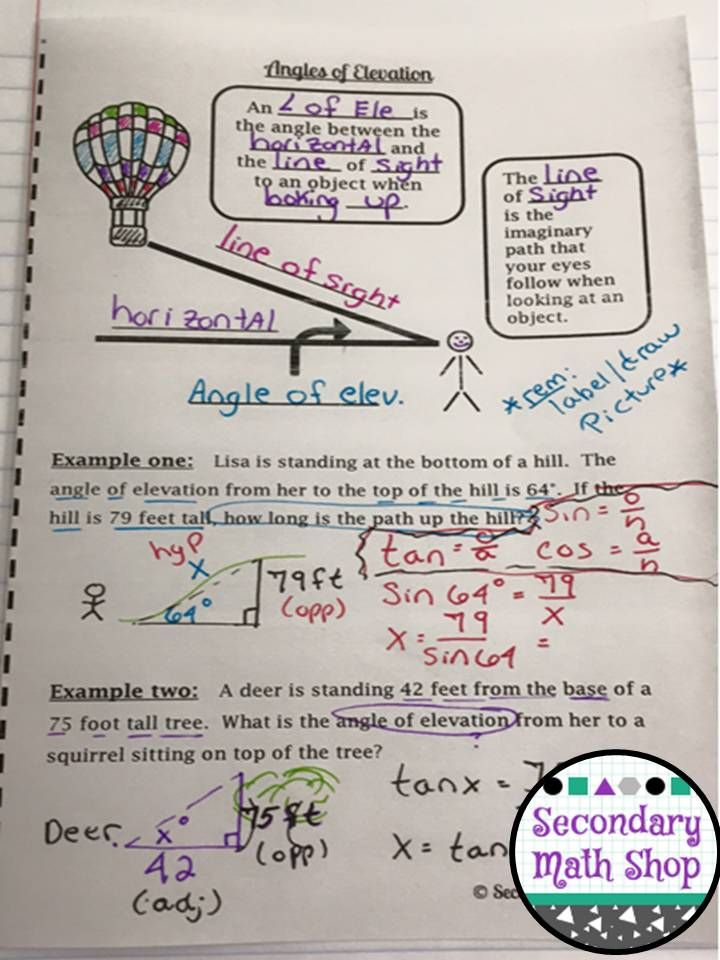 Angles of Elevation
An ∠ of Ele is
the angle between the
horizontal and
the line of sight
to an object when
looking up.
The line
of Sight
is the
imaginary
path that
your eyes
follow when
looking at an
object.
line of sight
horizontal
Angle of elev.
*rem:
label/draw
Picture*
Example one: Lisa is standing at the bottom of a hill. The
angle of elevation from her to the top of the hill is 64°. If the
hill is 79 feet tall, how long is the path up the hill?
Sin = o/h
tan = o/a cos = a/h
hyp
x
64°
79 ft
(opp)
Sin 64° = 79/x
x = 79/sin 64 =
Example two: A deer is standing 42 feet from the base of a
75 foot tall tree. What is the angle of elevation from her to a
squirrel sitting on top of the tree?
?
Deer
x°
75 ft
(opp)
42
(adj)
tan x =
x = tan
©
Secondary
Math Shop